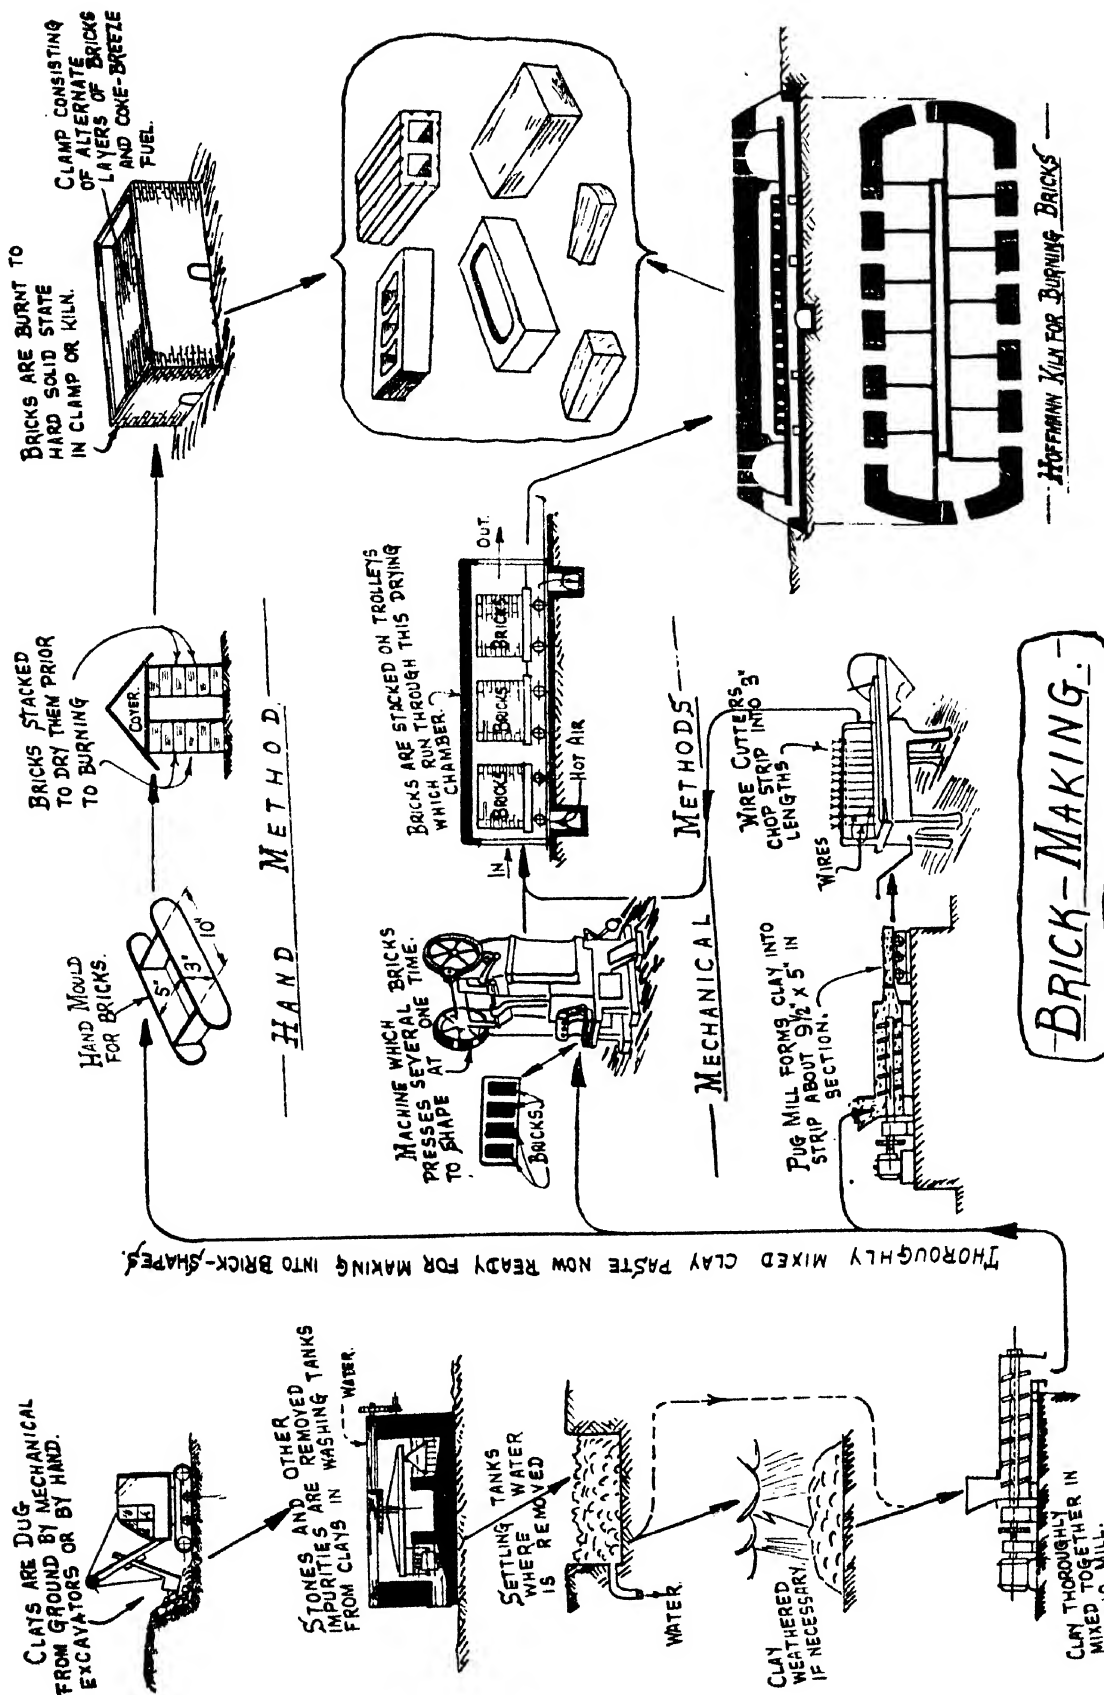 CLAYS ARE DUG
FROM GROUND BY MECHANICAL
EXCAVATORS OR BY HAND.
STONES AND OTHER
IMPURITIES ARE REMOVED
FROM CLAYS IN WASHING TANKS
WATER.
SETTLING TANKS
WHERE WATER
IS REMOVED
WATER
CLAY
WEATHERED
IF NECESSARY
CLAY THOROUGHLY
MIXED TOGETHER IN
MILL.
THOROUGHLY MIXED CLAY PASTE NOW READY FOR MAKING INTO BRICK-SHAPES.
HAND MOULD
FOR BRICKS.
5"
3"
10"
BRICKS STACKED
TO DRY THEM PRIOR
TO BURNING
COVER.
BRICKS ARE BURNT TO
HARD SOLID STATE
IN CLAMP OR KILN.
CLAMP CONSISTING
OF ALTERNATE
LAYERS OF BRICKS
AND COKE-BREEZE
FUEL.
HAND METHOD
MACHINE WHICH
PRESSES SEVERAL BRICKS
TO SHAPE AT ONE TIME.
BRICKS
BRICKS ARE STACKED ON TROLLEYS
WHICH RUN THROUGH THIS DRYING
CHAMBER.
IN
BRICKS
BRICKS
BRICKS
OUT.
HOT AIR
MECHANICAL METHODS
PUG MILL FORMS CLAY INTO
STRIP ABOUT 9½" X 5" IN
SECTION.
WIRE CUTTERS
CHOP STRIP INTO 3"
LENGTHS
WIRES
HOFFMANN KILN FOR BURNING BRICKS
BRICK-MAKING.